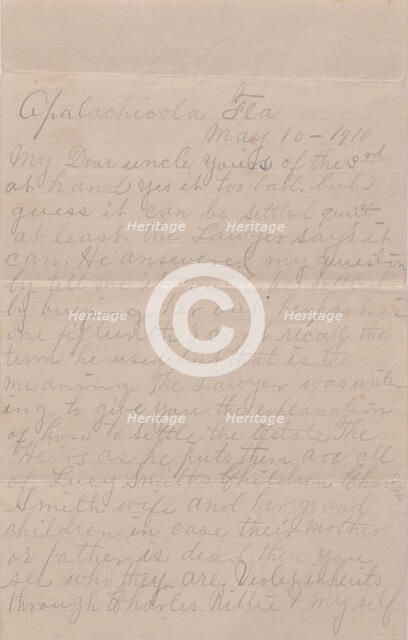 Apalachicola Fla
May 10 - 1910
My Dear uncle yours of the 3rd
at hand yes it too bad. but I
guess it can be settled quit
at least the Lawyer say's it
can. He answered my question
by
by his
one fifteen recall the
term he used but that is the
meaning The Lawyer was write-
ing to give you the explanation
of how to settle the estate The
Heirs as he puts them are all
of Lucy Smiths Children Charles
Smith wife and her grand
children in case their mother
or father is dead then you
see who they are, Violet inherits
through Charles Rillie & my self
Heritage
Heritage
Heritage
Heritage
Heritage
Heritage
Heritage
Heritage